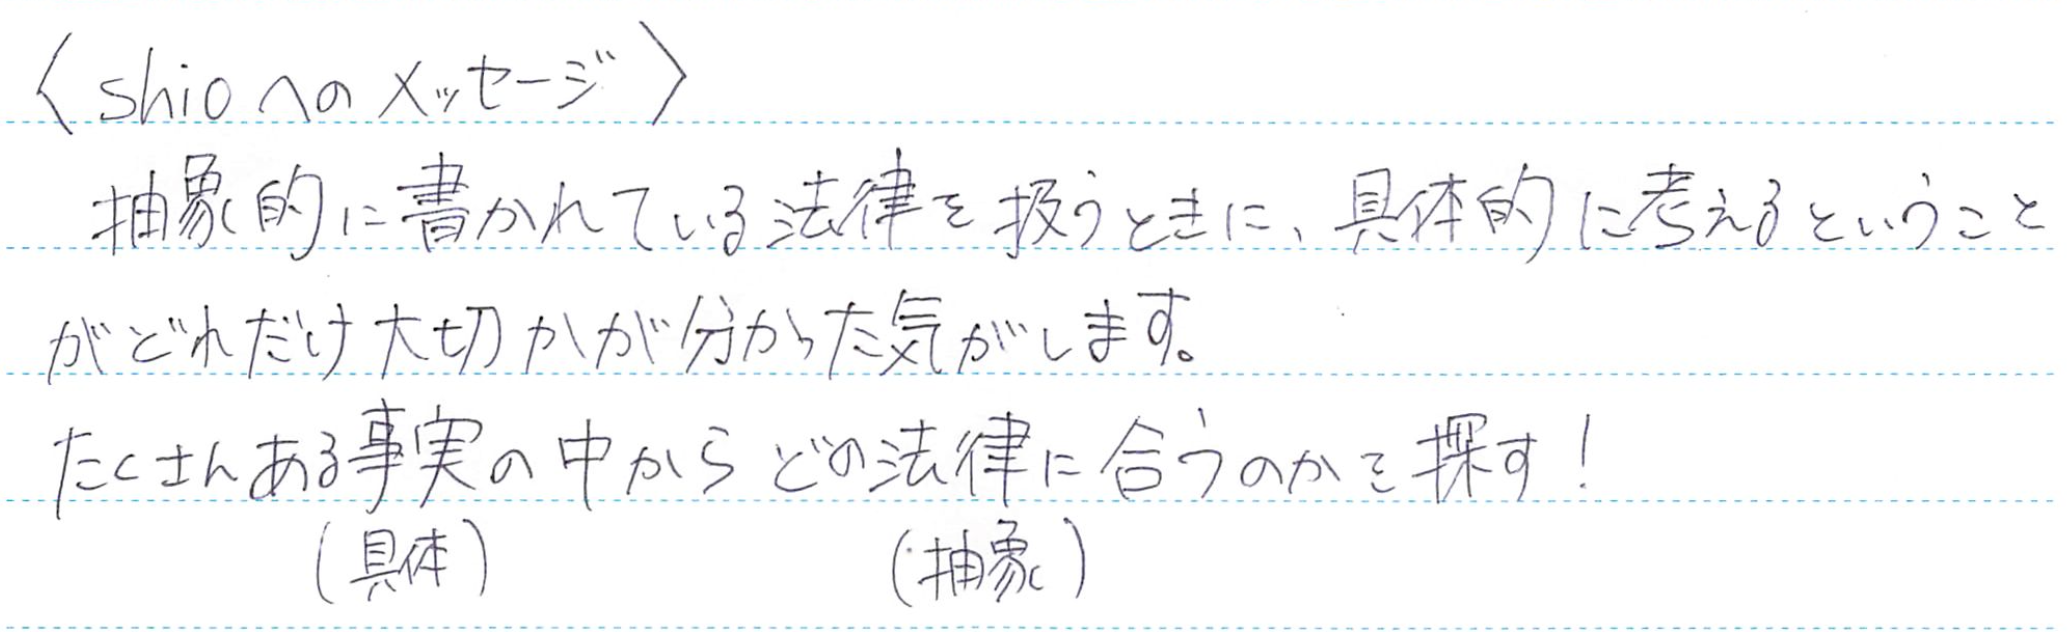 〈shioへのメッセージ〉
抽象的に書かれている法律を扱うときに、具体的に考えるということ
がどれだけ大切かが分かった気がします。
たくさんある事実の中からどの法律に合うのかを探す!
(具体) (抽象)